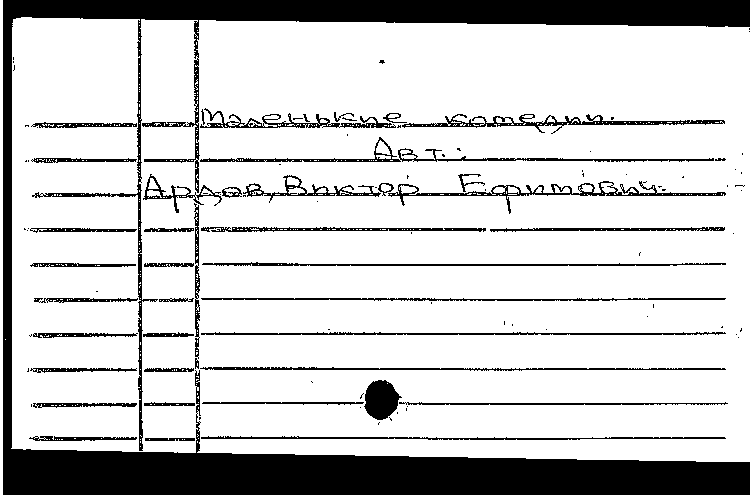 Маленькие комедии.
Авт.:
Ардов, Виктор Ефимович.